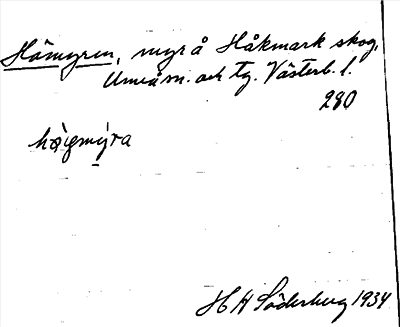 Hömyren, myr å Håkmark skog,
Umeå sn. och tg. Västerb. l.
280
högmýra
H H Söderberg 1934